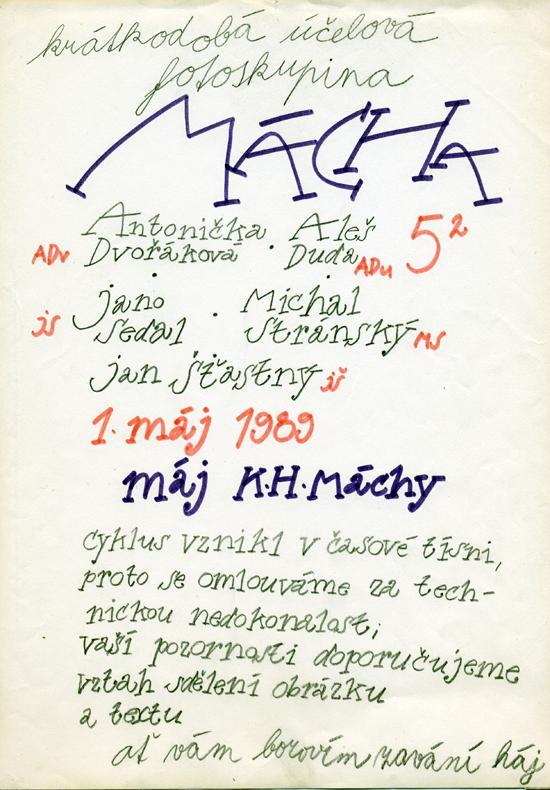 krátkodobá účelová
fotoskupina
MÁCHA
Antonička · Aleš 5²
ADv Dvořáková Duda ADu
jano · Michal
js sedal Stránský MS
jan šťastný jš
1. máj 1989
máj K.H. Máchy
cyklus vznikl v časové tísni,
proto se omlouváme za tech-
nickou nedokonalost;
vaší pozornosti doporučujeme
vztah sdělení obrázku
a textu
ať vám borovím zavání háj